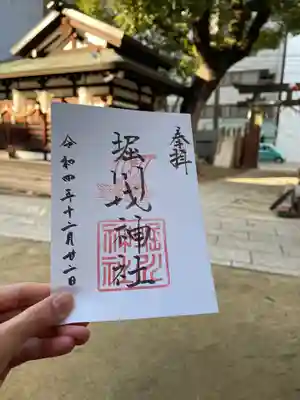 奉拝
堀川神社
令和四年十二月廿二日